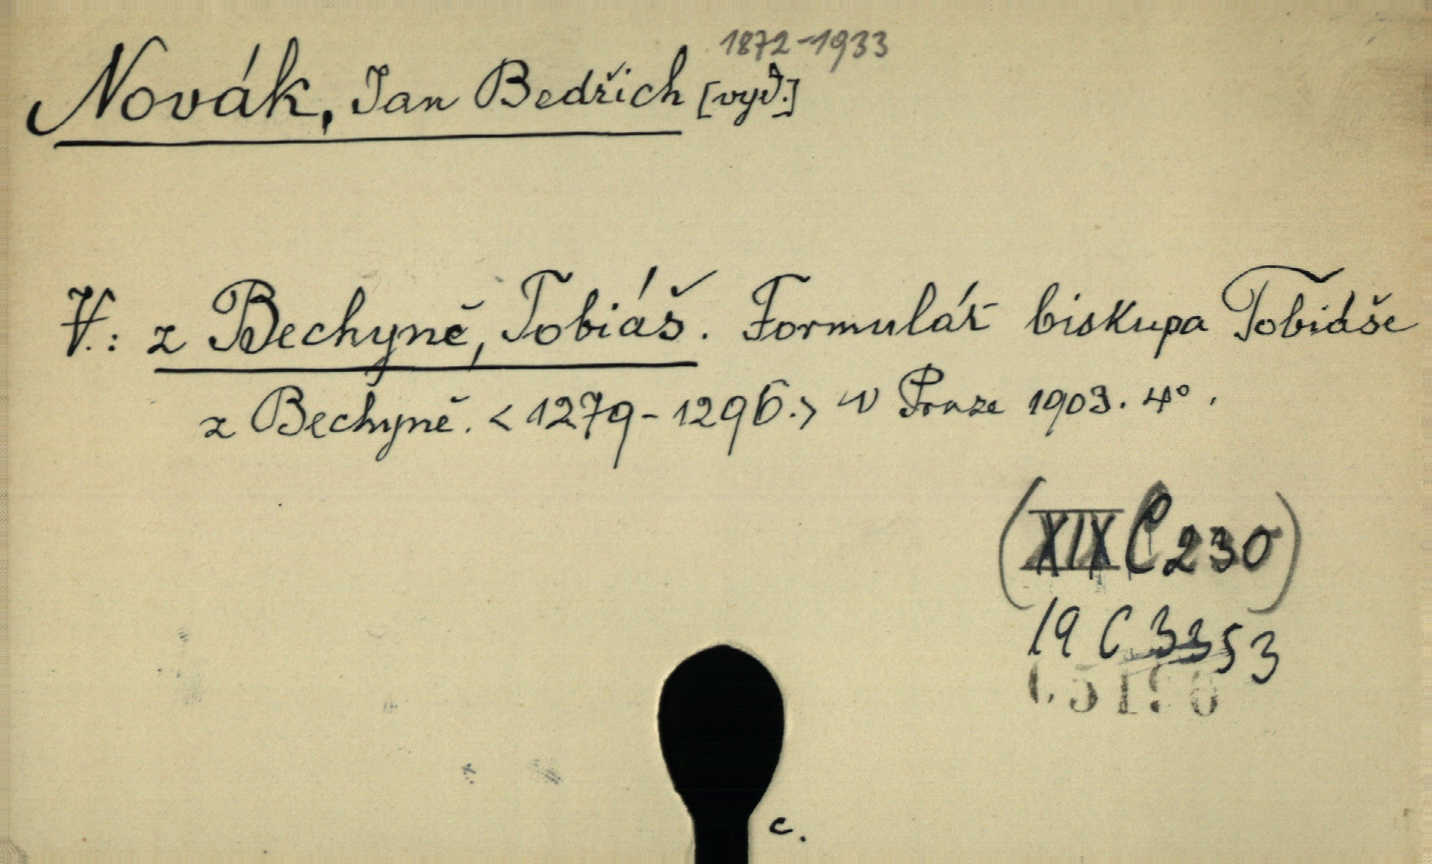 1872-1933
Novák, Jan Bedřich [vyd.]
V.: z Bechyně, Tobiáš. Formulář biskupa Tobiáše
z Bechyně. <1279-1296.> V Praze 1903. 4°.
(XIX C 230)
19 C 3353
c.